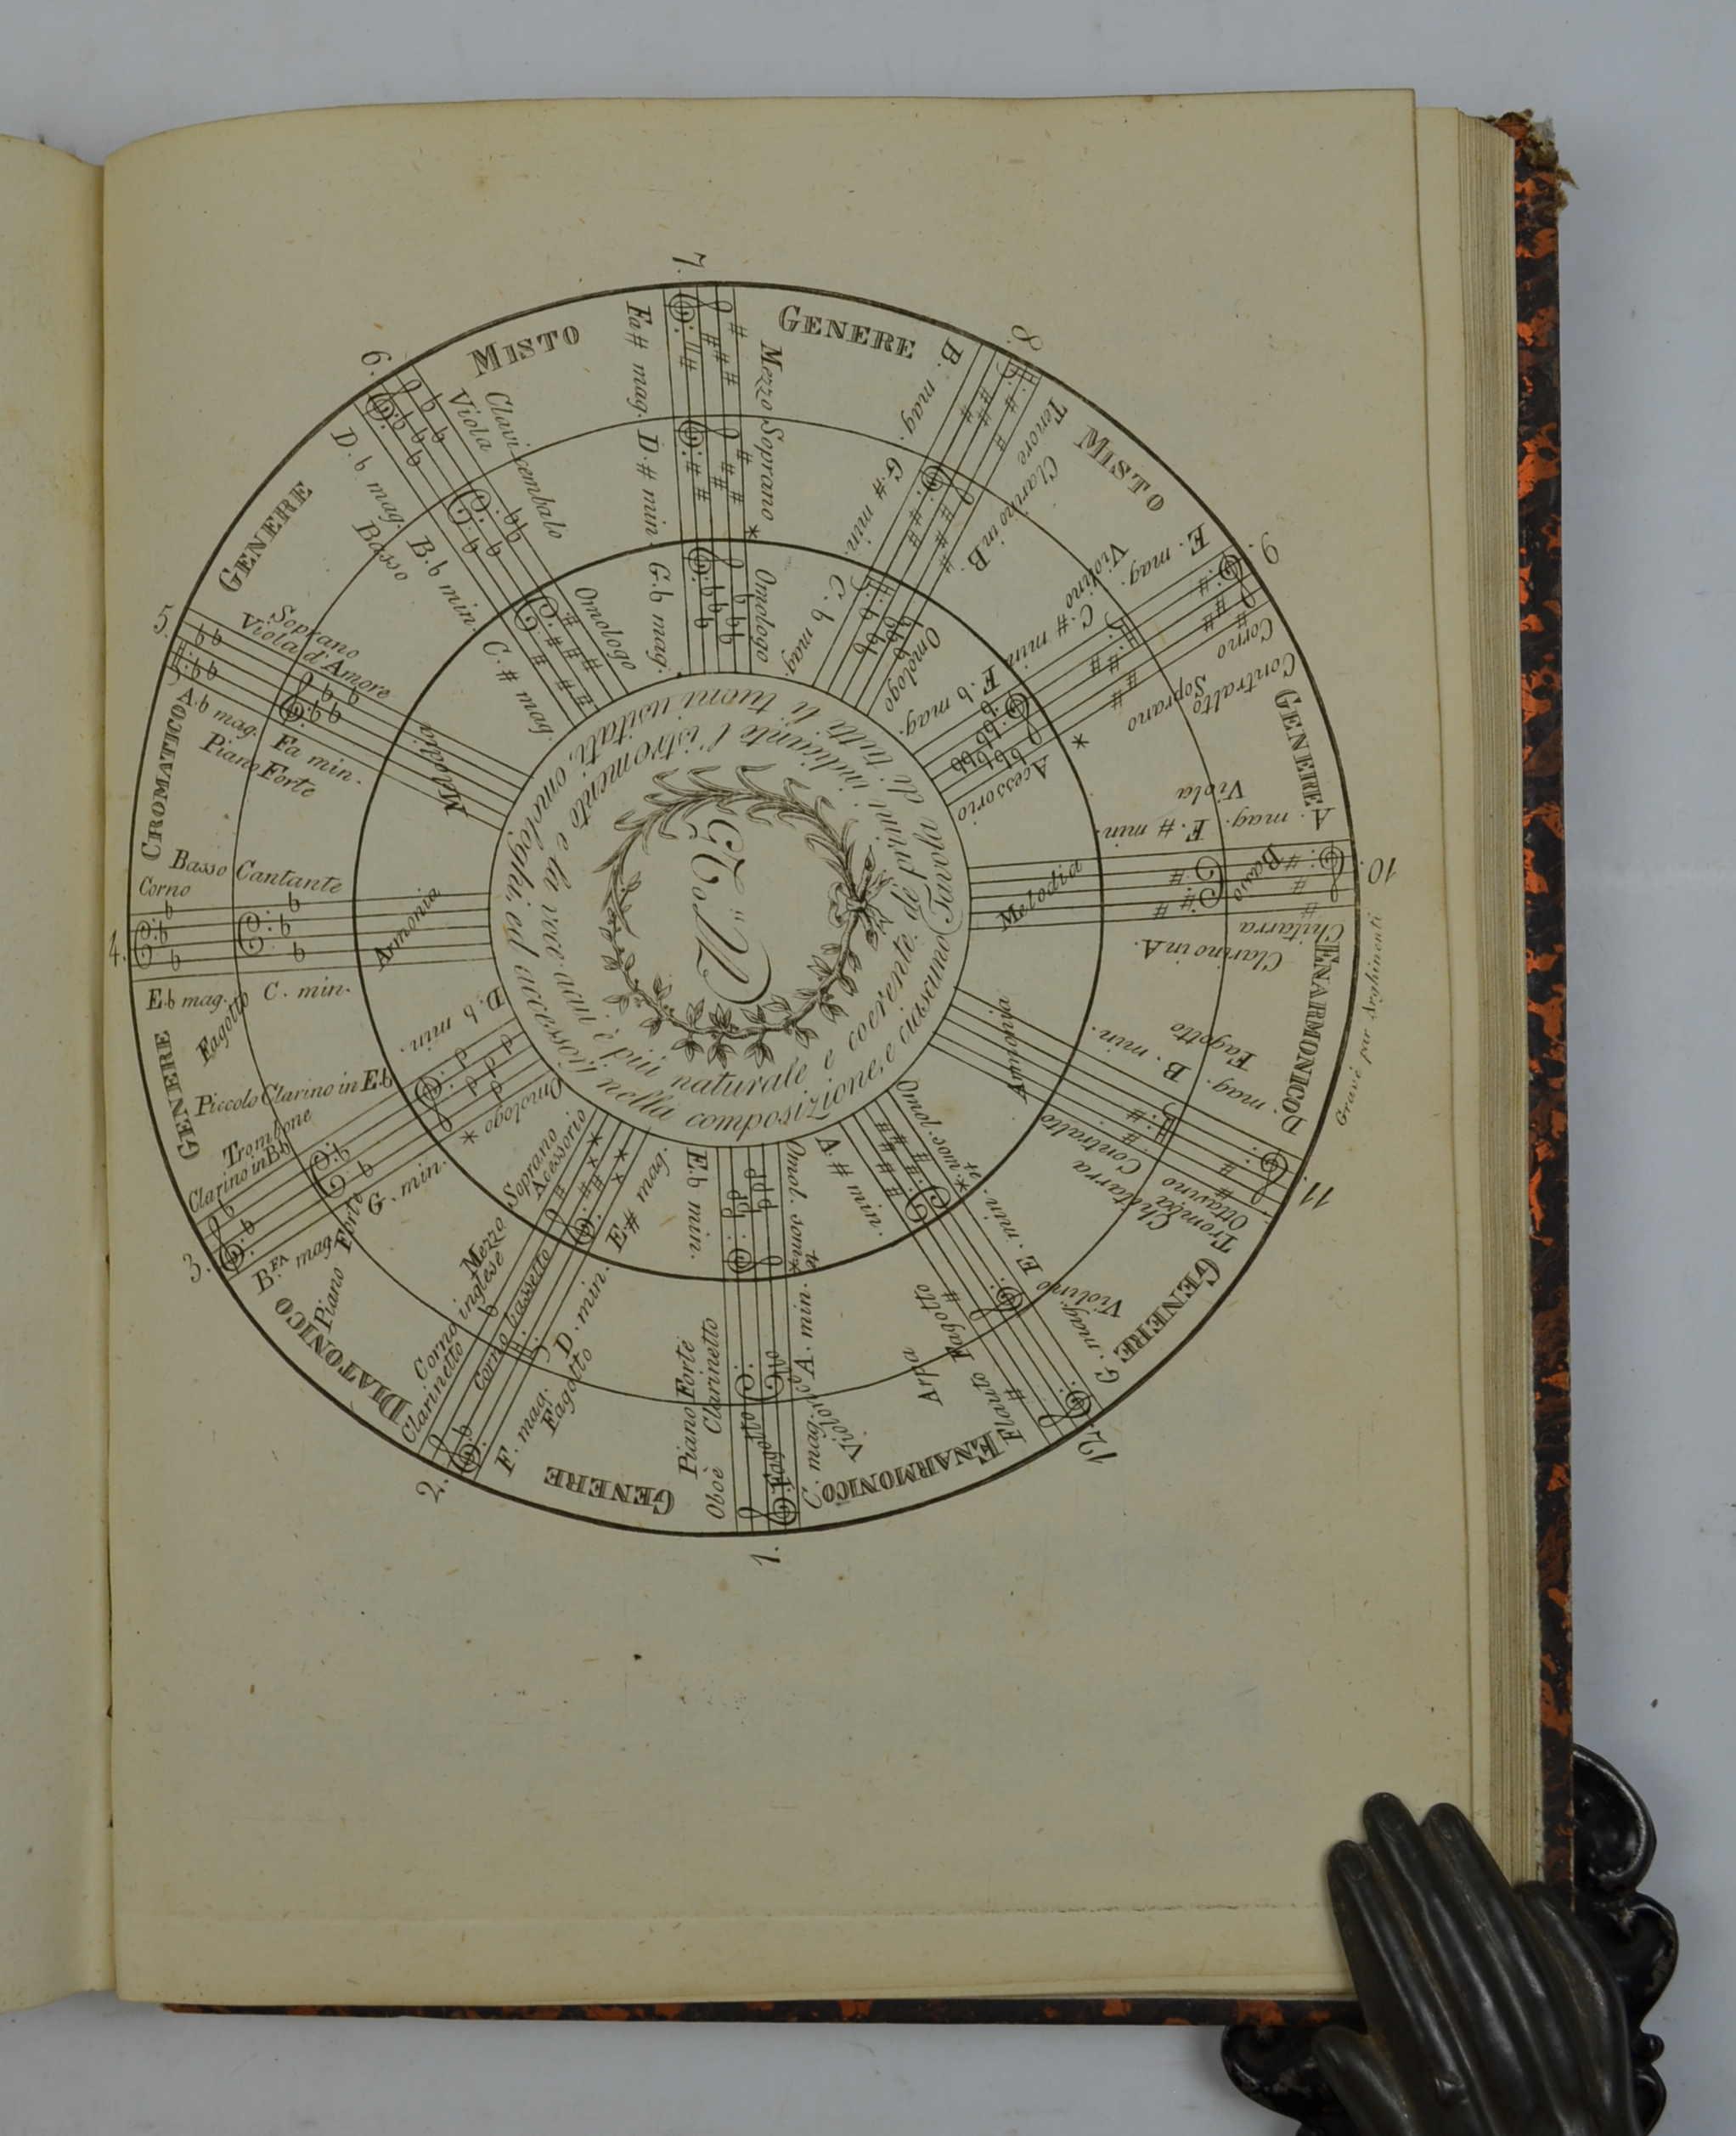 1.
Oboè
Piano Forte
Clarinetto
Fagotto
C. mag.
A. min.
E.b min.
Omol.
GENERE
2.
Clarinetto
Corno inglese
Mezzo Soprano
Acessorio
Corno bassetto
F. mag.
Fagotto
D. min.
E# mag.
DIATONICO
3.
Clarino in Bb
Trombone
Piccolo Clarino in E.b
B.FA mag.
Piano Forte
G. min.
D.b min.
Omologo *
GENERE
4.
Corno
Basso Cantante
Armonia
E.b mag.
Fagotto
C. min.
CROMATICO
5.
Soprano
Viola d'Amore
A.b mag.
Fa min.
Piano Forte
Melodia
GENERE
6.
Clavi cembalo
Viola
D.b mag.
Basso
B.b min.
C.# mag.
Omologo
MISTO
7.
Fa# mag.
D.# min.
G.b mag.
Mezzo Soprano *
Omologo
GENERE
8.
B. mag.
G.# min.
C.b mag.
Tenore
Clarino in B.
Omologo
MISTO
9.
E. mag.
Violino
C.# min.
F.b mag.
Corno
Contralto
Soprano
*
Acessorio
GENERE
10.
A. mag.
Viola
F.# min.
Basso
Melodia
Chitarra
Clarino in A.
ENARMONICO.
11.
D. mag.
Fagotto
B. min.
Armonia
Tromba
Ottavino
Chitarra
Contralto
GENERE
12.
G. mag.
Violino
E. min.
Flauto
Fagotto
Arpa
ENARMONICO
Tavola di tutti li tuoni usitati, omologhi, ed accessorj nella composizione, e ciascuno
de' primi indicante l'istromento e la voce a cui è più naturale e coerente.
Gravé par Arghinenti